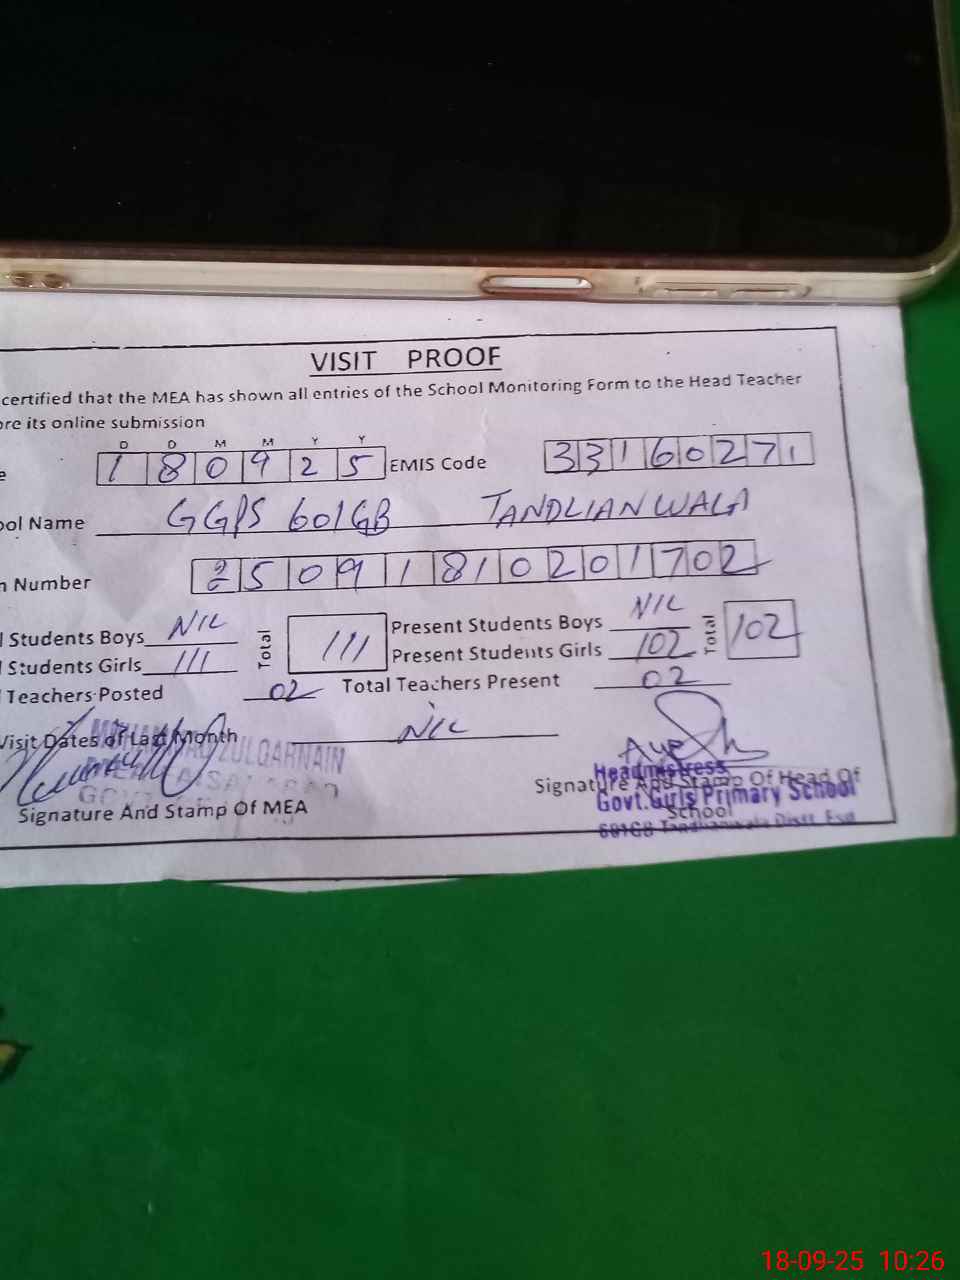 VISIT PROOF
certified that the MEA has shown all entries of the School Monitoring Form to the Head Teacher
ore its online submission
D D M M Y Y
e 180925 EMIS Code 33160271
ool Name GGPS 601GB TANDLIANWALA
n Number 25091810201702
l Students Boys NIL Total 111 Present Students Boys NIL Total 102
l Students Girls 111 Present Students Girls 102
Teachers Posted 02 Total Teachers Present 02
Visit Dates of Last Month NIL
ZULQARNAIN
Signature And Stamp Of MEA
Headmistress
Signature And Stamp Of Head Of
Govt. Girls Primary School
School
601GB Tandlianwala Distt. Fsd
18-09-25 10:26